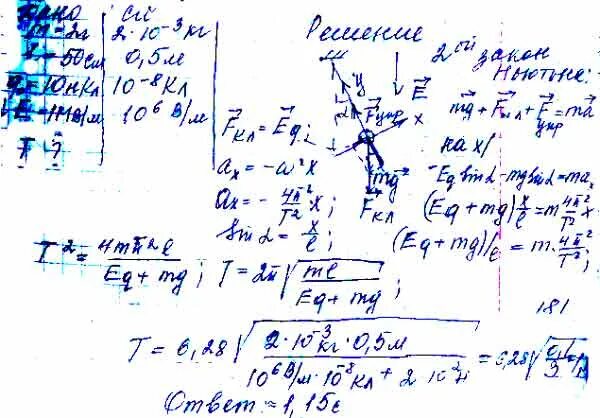 Дано | СИ
m = 2г | 2·10⁻³ кг
l = 50см | 0,5м
q = 10нКл | 10⁻⁸ Кл
E = 1МВ/м | 10⁶ В/м
T - ?
Решение
y
x
α
F⃗упр
E⃗
mg⃗
F⃗кл
F⃗кл = E⃗q;
aₓ = -ω²x
aₓ = - 4π²/T² x;
sin α = x/l;
2ой закон
Ньютона:
mg⃗ + F⃗кл + F⃗упр = ma⃗
на x/
-Eq sin α - mg sin α = maₓ
(Eq + mg) x/l = m 4π²/T² x
(Eq + mg)/l = m · 4π²/T²;
T² = 4mπ²l / (Eq + mg); T = 2π √(ml / (Eq + mg));
181
T = 6,28 √(2·10⁻³ кг · 0,5м / (10⁶ В/м · 10⁻⁸ Кл + 2·10⁻² Н)) = 6,28
Ответ = 1,15с